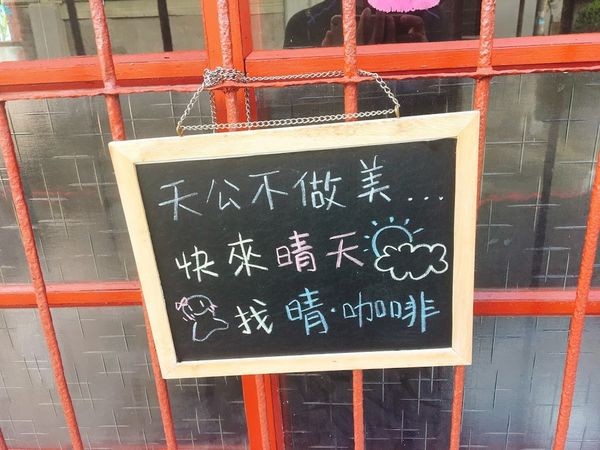 天公不做美...
快來晴天
找晴·咖啡